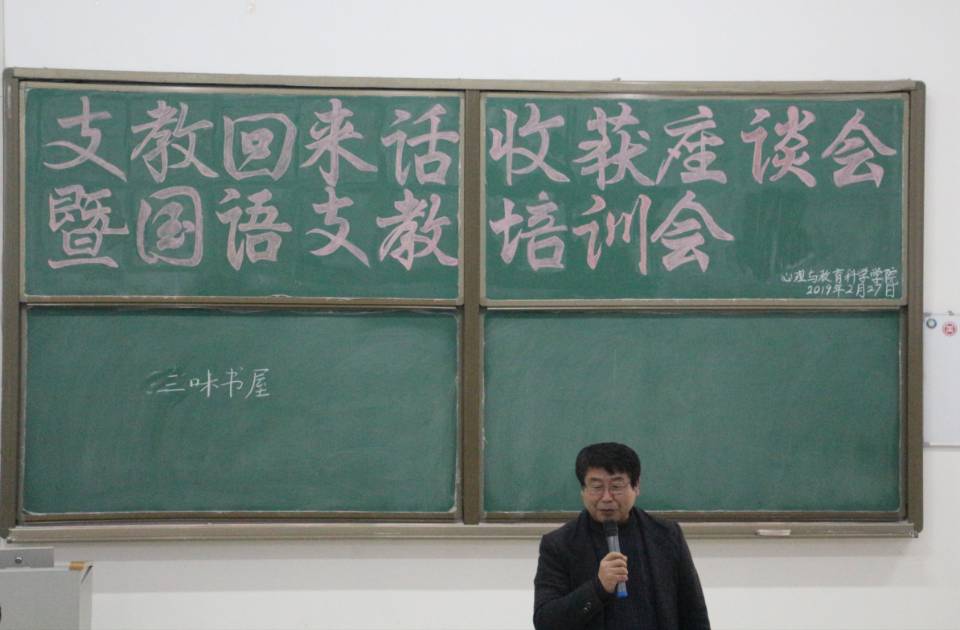 支教回来话 收获座谈会
暨国语支教 培训会
心理与教育科学学院
2019年2月27日
三味书屋